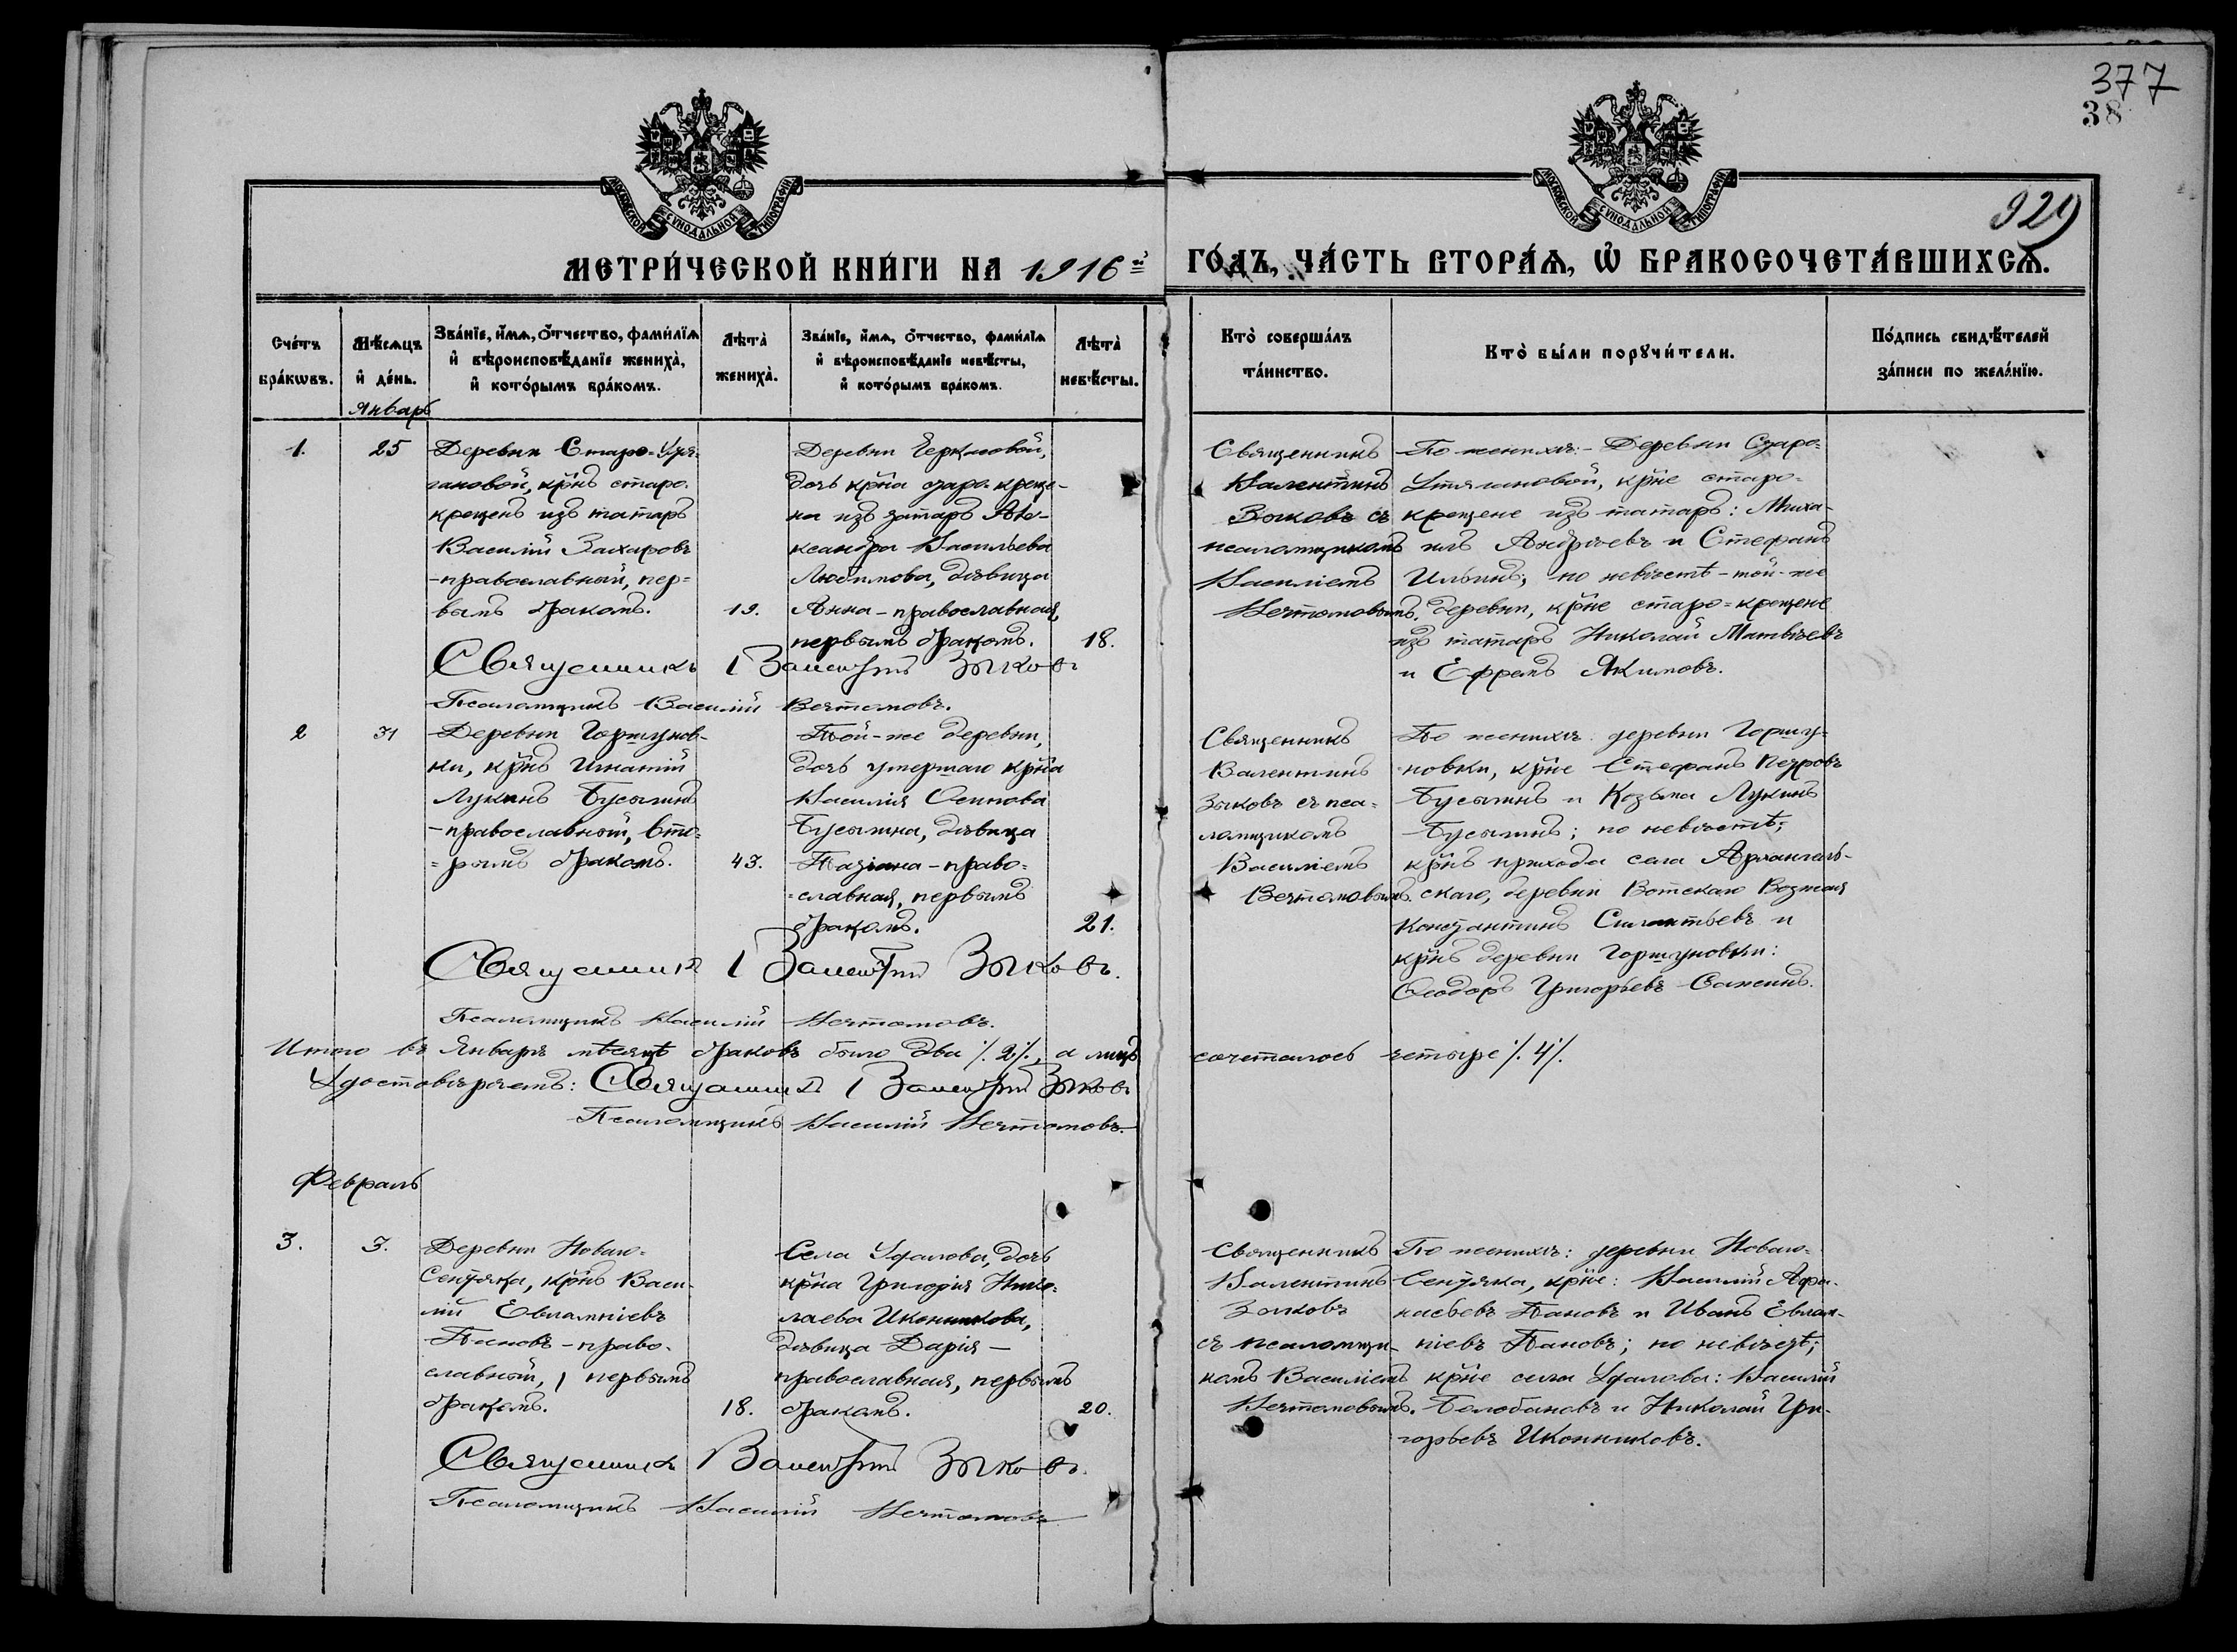 377
38
929
МОСКОВСКОЙ СУНОДАЛЬНОЙ ТИПОГРАФІИ
МОСКОВСКОЙ СУНОДАЛЬНОЙ ТИПОГРАФІИ
МЕТРИ́ЧЕСКОЙ КНИ́ГИ НА 1916й ГО́ДЪ, ЧА́СТЬ ВТОРА́Ѧ, Ѽ БРАКОСОЧЕТА́ВШИХСѦ.
Сче́тъ бра́кѡвъ.
Мѣ́сѧцъ и҆ де́нь.
Зва́нїе, и҆́мѧ, ѻ҆́тчество, фами́лїѧ и҆ вѣроисповѣ́данїе жениха̀, и҆ кото́рымъ бра́комъ.
Лѣта̀ жениха̀.
Зва́нїе, и҆́мѧ, ѻ҆́тчество, фами́лїѧ и҆ вѣроисповѣ́данїе невѣ́сты, и҆ кото́рымъ бра́комъ.
Лѣта̀ невѣ́сты.
Кто̀ соверша́лъ та́инство.
Кто̀ бы́ли порꙋчи́тели.
По́дпись свидѣ́телей за́писи по жела́нїю.
Январь
1.
25
Деревни Старо-Утя-
гановой, кр̃нъ старо-
крещенъ изъ татаръ
Василій Захаровъ
-православный, пер-
вымъ бракомъ.
19.
Деревни
дочь кр̃на старо-креще-
на изъ татаръ Але-
ксандра Васильева
Любимова, дѣвица
Анна - православная,
первымъ бракомъ.
18.
Священникъ
Валентинъ
Зыковъ съ
псаломщикомъ
Василіемъ
Вечтомовымъ.
По женихѣ: - Деревни Старо-
Утягановой, кр̃не старо-
крещене изъ татаръ: Миха-
илъ Андреевъ и Стефанъ
Ильинъ; по невѣстѣ - той-же
деревни, кр̃не старо-крещене
изъ татаръ Николай Матвѣевъ
и Ефремъ Якимовъ.
Священникъ Валентинъ Зыковъ
Псаломщикъ Василій Вечтомовъ.
2
31
Деревни Горшунов-
ки, кр̃нъ Игнатій
Лукинъ Бусыгинъ
-православный, вто-
рымъ бракомъ.
43.
Той-же деревни,
дочь умершаго кр̃на
Василія Осипова
Бусыгина, дѣвица
Татіана - право-
славная, первымъ
бракомъ.
21.
Священникъ
Валентинъ
Зыковъ съ пса-
ломщикомъ
Василіемъ
Вечтомовымъ.
По женихѣ: деревни Горшу-
новки, кр̃не Стефанъ Петровъ
Бусыгинъ и Козьма Лукинъ
Бусыгинъ; по невѣстѣ;
кр̃нъ прихода села Архангель-
скаго, деревни Вотскаго Возжая
Константинъ Силантьевъ и
кр̃нъ деревни Горшуновки:
Ѳеодоръ Григорьевъ Сажинъ.
Священникъ Валентинъ Зыковъ.
Псаломщикъ Василій Вечтомовъ.
Итого въ Январѣ мѣсяцѣ браковъ было два /. 2 /., а лицъ сочеталось четыре /. 4 /.
Удостовѣряемъ: Священникъ Валентинъ Зыковъ
Псаломщикъ Василій Вечтомовъ.
Февраль
3.
3.
Деревни Новаго-
Сентяка, кр̃нъ Васи-
лій Евлампіевъ
Пановъ - право-
славный, первымъ
бракомъ.
18.
Села Уфалова, дочь
кр̃на Григорія Нико-
лаева Иконникова,
дѣвица Дарія -
православная, первымъ
бракомъ.
20.
Священникъ
Валентинъ
Зыковъ
съ псаломщи-
комъ Василіемъ
Вечтомовымъ.
По женихѣ: деревни Новаго-
Сентяка, кр̃не: Василій Афа-
насьевъ Пановъ и Иванъ Евлам-
піевъ Пановъ; по невѣстѣ;
кр̃не села Уфалова: Василій
Белобановъ и Николай Гри-
горьевъ Иконниковъ.
Священникъ Валентинъ Зыковъ.
Псаломщикъ Василій Вечтомовъ